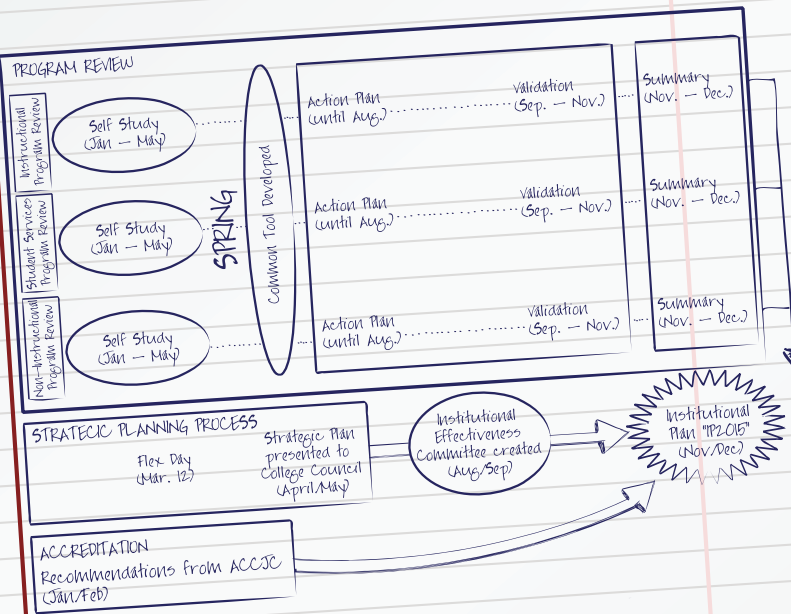 PROGRAM REVIEW
Instructional
Program Review
Self Study
(Jan – May)
Action Plan
(until Aug.)
Validation
(Sep. – Nov.)
Summary
(Nov. – Dec.)
Student Services
Program Review
Self Study
(Jan – May)
SPRING
Common Tool Developed
Action Plan
(until Aug.)
Validation
(Sep. – Nov.)
Summary
(Nov. – Dec.)
Non-Instructional
Program Review
Self Study
(Jan – May)
Action Plan
(until Aug.)
Validation
(Sep. – Nov.)
Summary
(Nov. – Dec.)
STRATECIC PLANNING PROCESS
Flex Day
(Mar. 12)
Strategic Plan
presented to
College Council
(April/May)
Institutional
Effectiveness
Committee created
(Aug/Sep)
Institutional
Plan "IP2015"
(Nov/Dec)
ACCREDITATION
Recommendations from ACCJC
(Jan/Feb)